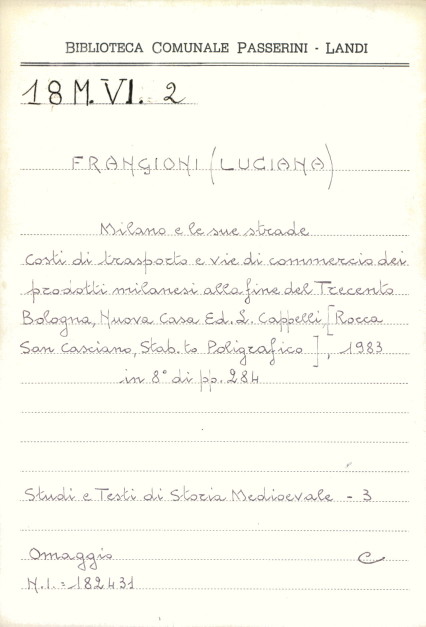 BIBLIOTECA COMUNALE PASSERINI - LANDI
18 M. VI. 2
FRANGIONI (LUCIANA)
Milano e le sue strade
Costi di trasporto e vie di commercio dei
prodotti milanesi alla fine del Trecento
Bologna, Nuova Casa Ed. L. Cappelli, [Rocca
San Casciano, Stab.to Poligrafico], 1983
in 8° di pp. 284
Studi e Testi di Storia Medioevale - 3
Omaggio C
N.I. = 182431